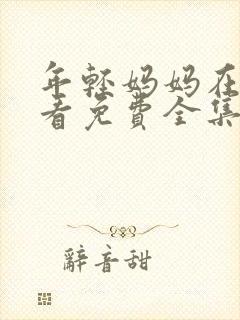 年轻妈妈在
看免费全集
辭音甜